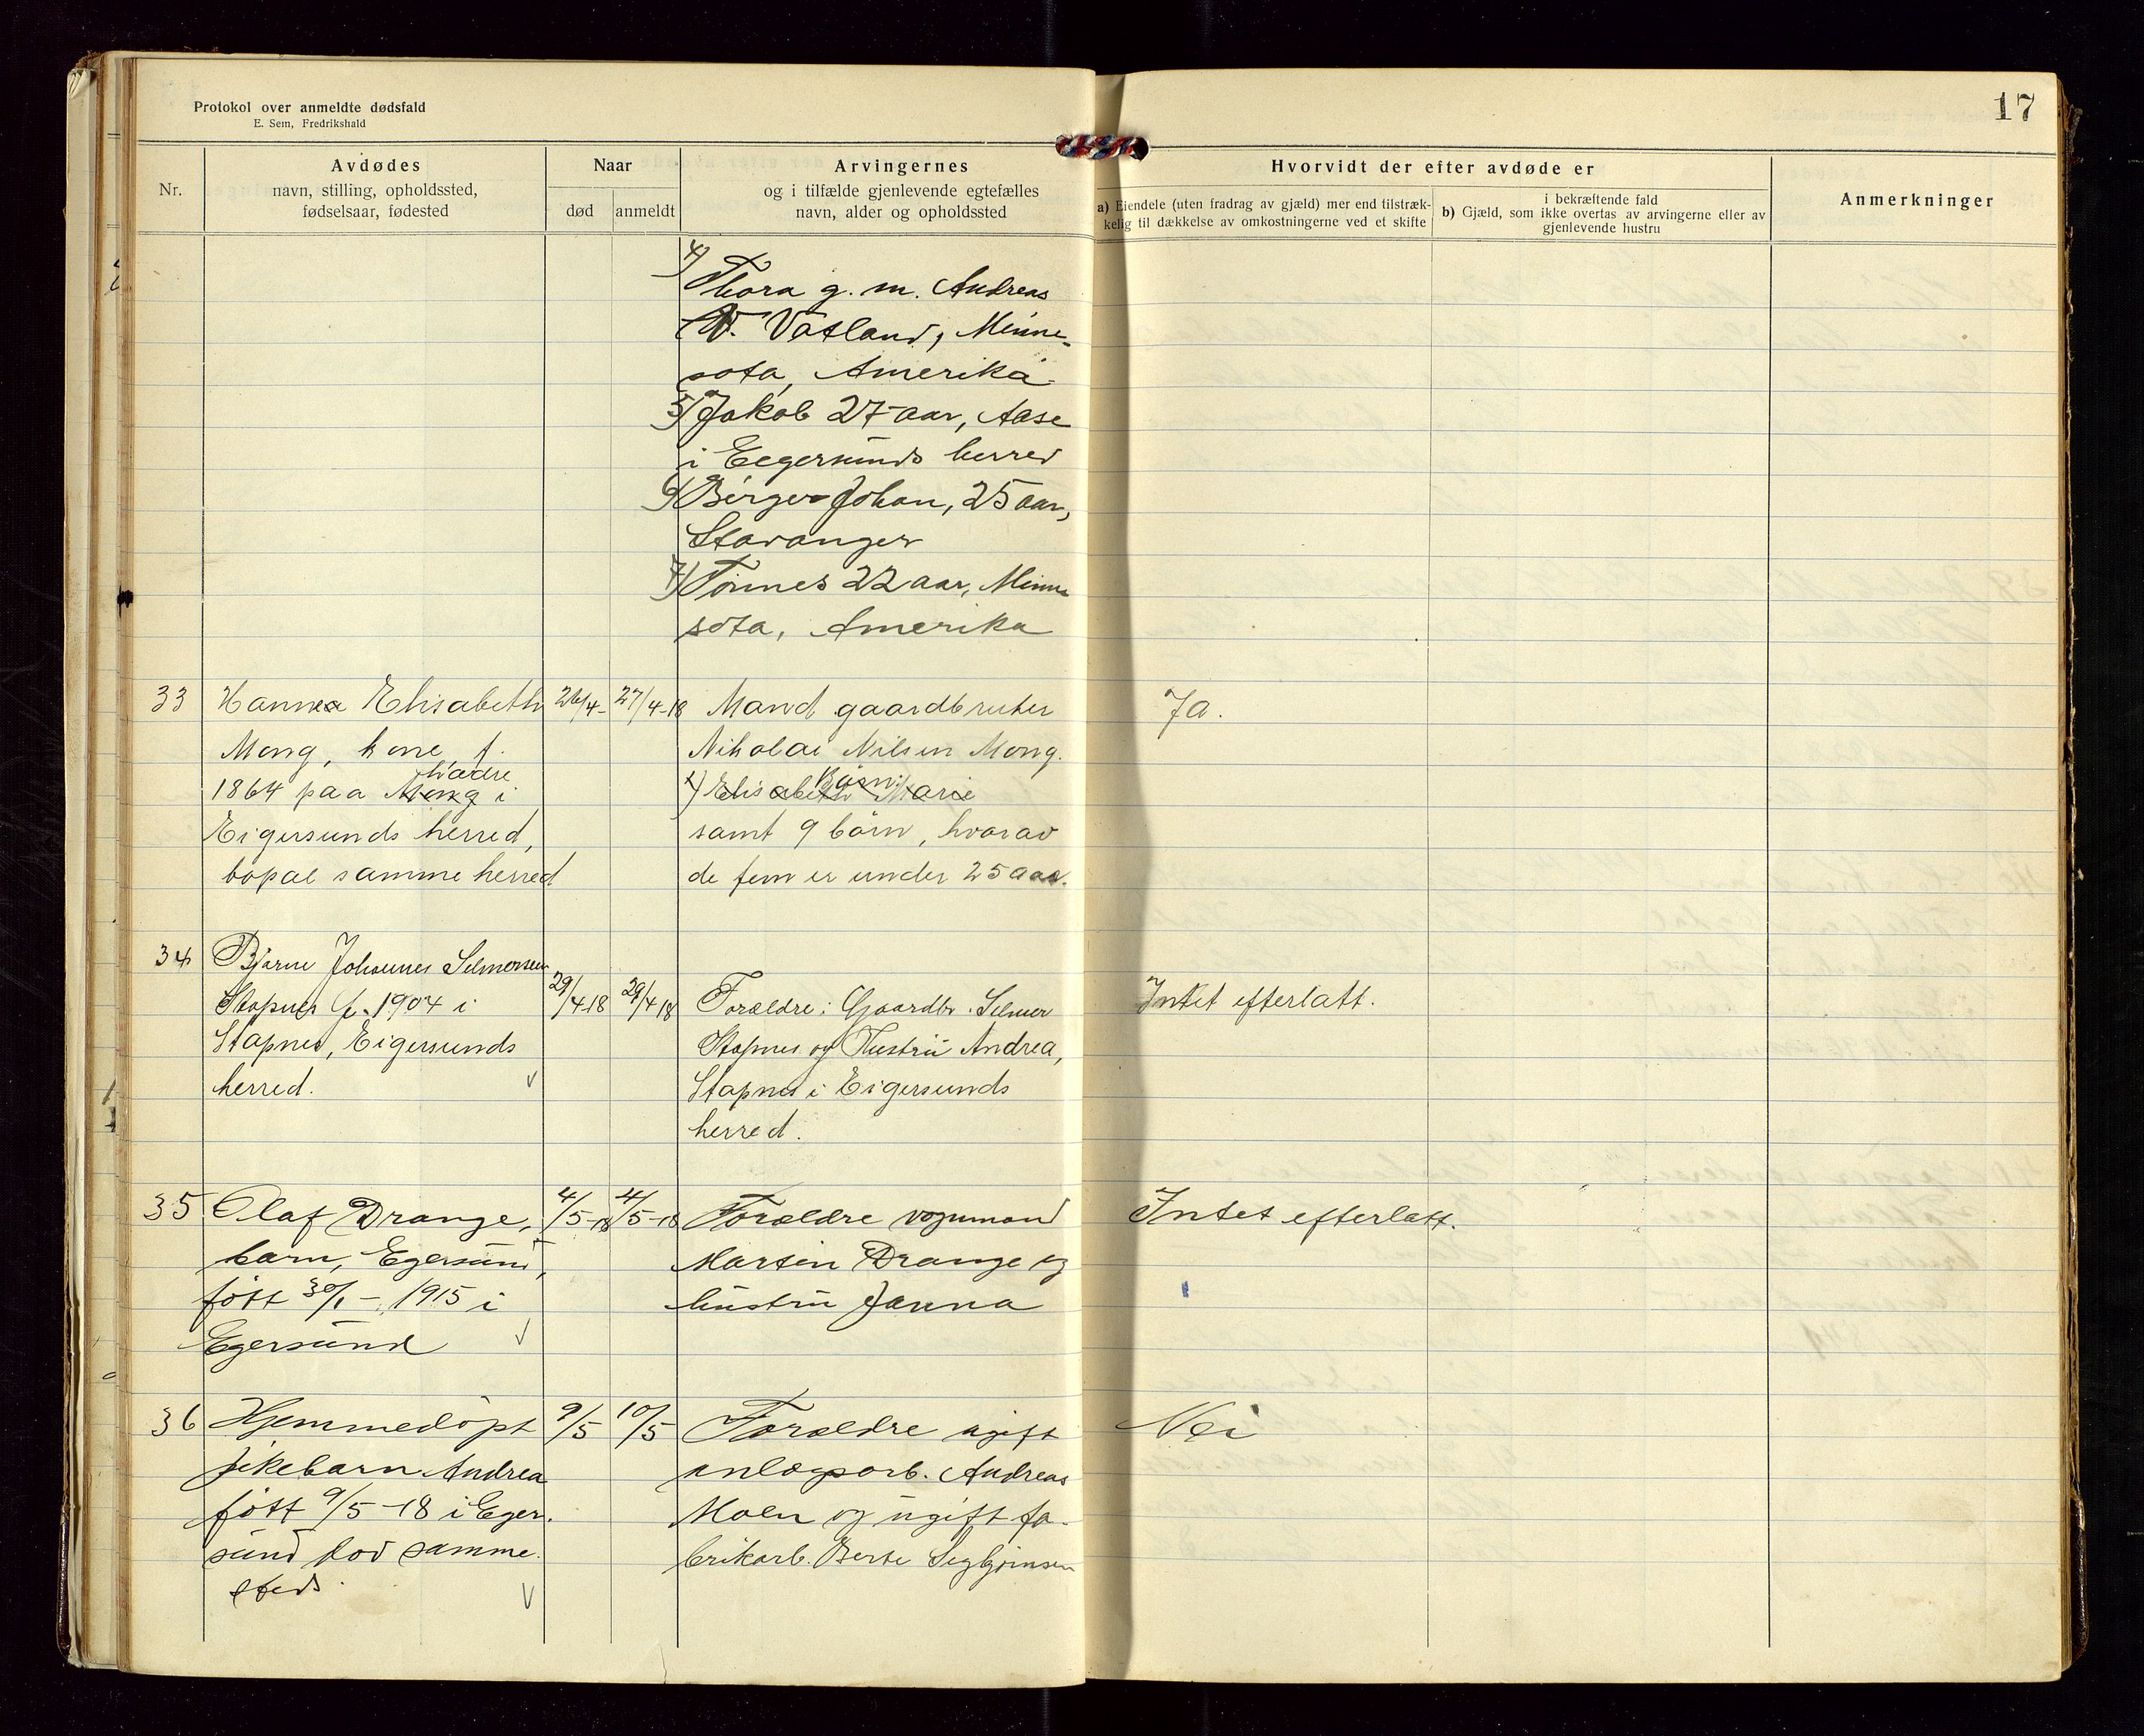 Protokol over anmeldte dødsfald
E. Sem, Fredrikshald
17
Nr.
Avdødes
navn, stilling, opholdssted,
fødselsaar, fødested
Naar
død
anmeldt
Arvingernes
og i tilfælde gjenlevende egtefælles
navn, alder og opholdssted
Hvorvidt der efter avdøde er
a) Eiendele (uten fradrag av gjæld) mer end tilstræk-
kelig til dækkelse av omkostningerne ved et skifte
i bekræftende fald
b) Gjæld, som ikke overtas av arvingerne eller av
gjenlevende hustru
Anmerkninger
4) Thora g. m. Andreas
Vatland, Minne-
sota, Amerika
5) Jakob 27 aar, Aase
i Eegersunds herred
6) Berger Johan, 25 aar,
Stavanger
7) Tönnes 22 aar, Minne
sota, Amerika
33
Hanna Elisabeth
Mong, kone, f.
1864 paa Mong i
Eigersunds herred,
bopæl samme herred
26/4-
27/4-18
Mand gaardbruker
Nikolai Nilsen Mong.
Börn:
1) Elisabeth Marie
samt 9 börn, hvorav
de fem er under 25 aar.
Ja.
34
Bjarne Johannes Selmersen
Stapnes f. 1904 i
Stapnes, Eigersunds
herred. v
29/4-18
29/4 18
Forældre: Gaardbr. Selmer
Stapnes og Hustrü Andrea,
Stapnes i Eigersunds
herred.
Intet efterlatt.
35
Olaf Drange,
barn, Egersund,
fött 30/1 - 1915 i
Egersünd v
4/5-18
4/5-18
Forældre vognmand
Martin Drange og
hüstrü Janna
Intet efterlatt.
36
Hjemmedöpt
pikebarn Andrea
fött 9/5-18 i Eger-
sünd död samme-
steds. v
9/5
10/5
Forældre ugift
anlægsarb. Andreas
Moen og ügift fa-
brikarb. Berte Sigbjörnsen
Nei